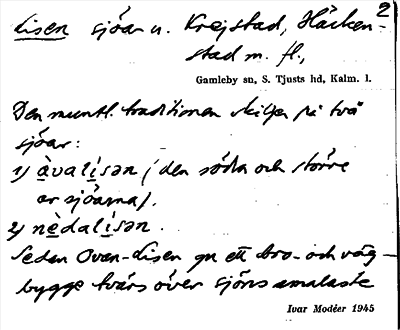 Lisen sjöar u. Krejstad, Häcken- 2
stad m. fl.,
Gamleby sn, S. Tjusts hd, Kalm. l.
Den muntl. traditionen skiljer på två
sjöar:
1) àvalísən (den södra och större
av sjöarna).
2) nèdalísən.
Sedan Ovan-Lisen gm ett bro- och väg-
bygge tvärs över sjöns smalaste
Ivar Modéer 1945